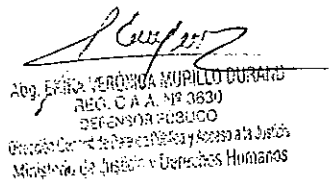 Abg. ERIKA VERÓNICA MURILLO DURAND
REG. C.A.A. Nº 3630
DEFENSOR PÚBLICO
Dirección General de Defensa Pública y Acceso a la Justicia
Ministerio de Justicia y Derechos Humanos